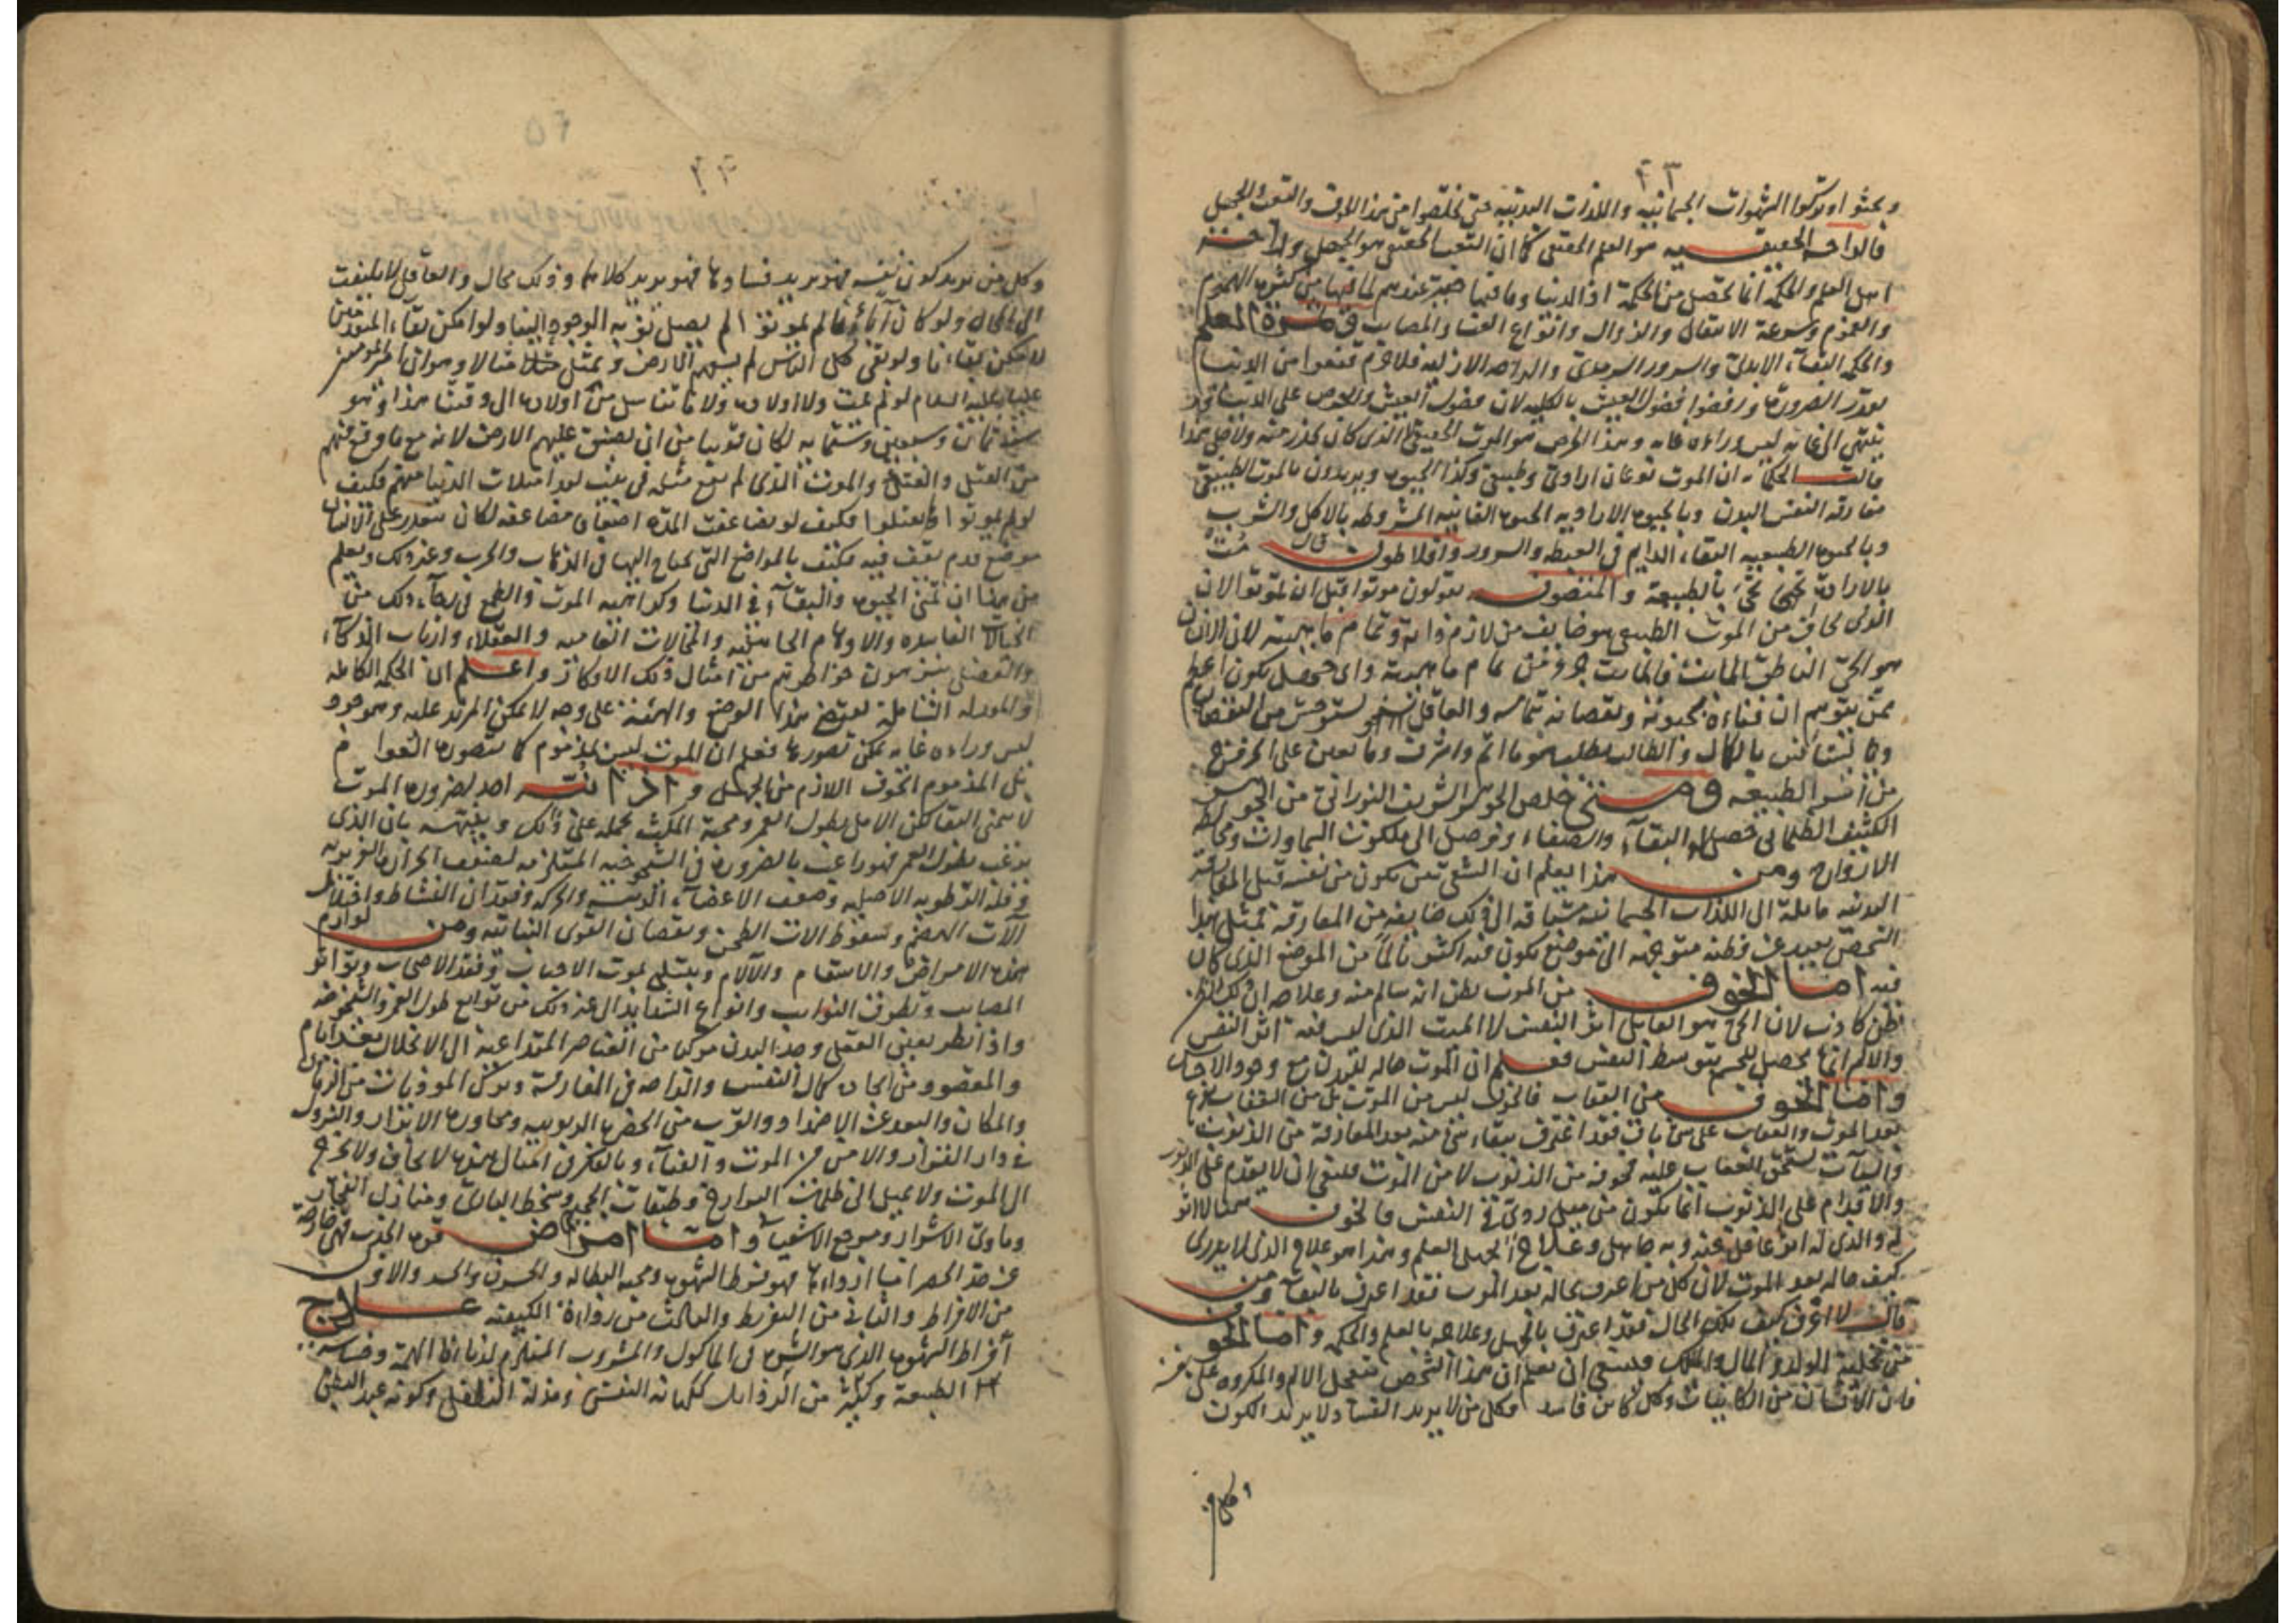 ٤٣
وبحثوا وتركوا الشهوات الجسمانية واللذات البدنية حتى تخلصوا من هذا الخوف والتعب والجهل
فالراحة الحقيقية هو العلم الحقيقي كما ان التعب الحقيقي هو الجهل وراحة
اهل العلم والحكمة انما تحصل من الحكمة اذ الدنيا وما فيها حقيرة عندهم لما فيها من كثرة الهموم
والغموم وسرعة الانتقال والزوال وانواع العنا والمصايب وثمرة العلم
والحكمة البقاء الابدي والسرور السرمدي والراحة الازلية فلا جرم قنعوا من الدنيا
بقدر الضرورة ورفضوا فضول العيش بالكلية لان فضول العيش والحرص على الدنيا
ينتهي الى غاية ليس وراءه غاية وهذا الحرص هو الموت الحقيقي الذي كان يحذر منه ولاجل هذا
قالت الحكماء ان الموت نوعان ارادي وطبيعي وكذا الحيوة ويريدون بالموت الطبيعي
مفارقة النفس البدن وبالحيوة الارادية الحيوة الفانية المشروطة بالاكل والشرب
وبالحيوة الطبيعية البقاء الدايم في الغبطة والسرور وافلاطون قال مت
بالارادة تحيى بالطبيعة والمتصوفة يقولون موتوا قبل ان تموتوا لان
الذي يخاف من الموت الطبيعي هو خايف من لازم ذاته وتمام ماهيته لان الانسان
هو الحي الناطق المائت فالمايت جزء من تمام ماهيته واي جهل يكون اعظم
ممن يتوهم ان فناءه بحيوته ونقصانه بتمامه والعاقل يستوحش من النقصان
ويستأنس بالكمال والطالب يطلب هو ما اتم واشرف وما يعين على الخروج
من اسر الطبيعة ومتى خلص الجوهر الشريف النوراني من الجوهر
الكثيف الظلماني حصل له البقاء والصفاء ووصل الى ملكوت السماوات ومخالطة
الارواح ومن هذا يعلم ان الشقي من يكون من نفسه قبل المفارقة
البدنية مايلة الى اللذات الجسمانية مشتاقة الى ذلك خايفة من المفارقة فمثل هذا
الشخص بعيد عن وطنه متوجه الى موضع يكون فيه اكثر تألما من الموضع الذي كان
فيه اما الخوف من الموت بظن انه سالم منه وعلاجه ان ذلك الظن
ظن كاذب لان الحي هو القابل اثر النفس لا الميت الذي ليس فيه اثر النفس
والالم انما يحصل للجسم بتوسط النفس فعلم ان الموت حاله
واما الخوف من العقاب فالخوف ليس من الموت بل من العقاب
بعد الموت والعقاب على شيء باق فقد اعترف ببقاء شيء منه بعد المفارقة من الذنوب
والسيآت يستحق العقاب عليه فخوفه من الذنوب لا من الموت فينبغي ان لا يقدم على الذنوب
والاقدام على الذنوب انما يكون من فعل ردي في النفس فالخوف مما لا اثر
له والذي له اثر غافل عنه وبه جاهل وعلاج الجهل العلم وهذا هو علاج الذي لا يدري
كيف حاله بعد الموت لان كل من اعترف بحالة بعد الموت فقد اعترف بالبقاء ومن
قال لا اعرف كيف تلك الحال فقد اعترف بالجهل وعلاجه بالعلم والحكمة واما الخوف
من تخلية الولد والمال والملك فينبغي ان يعلم ان هذا الشخص تعجل الالم والمكروه على نفسه
فان الانسان من الكاينات وكل كاين فاسد فكل من لا يريد الفساد لا يريد الكون
وكل من
٤٤
٥٦
وكل من يريد كون نفسه فهو يريد فسادها فهو يريد كلاهما وذلك محال والعاقل لا يلتفت
الى المحال ولو كان آباؤنا لم يموتوا لم يصل نوبة الوجود الينا ولو امكن بقاء المتقدمين
لامكن بقاءنا ولو بقي كل الناس لم يسعهم الارض ويمثل مثالا وهو ان امير المؤمنين
عليا عليه السلام لو لم يمت ولا اولاده ولا ما تناسل من اولاده الى وقتنا هذا وهو
سنة ثمان وسبعين وستماية لكان قريبا من ان يضيق عليهم الارض لانه مع ما وقع فيهم
من القتل والقتل والموت الذي لم يقع مثله في بيت لقد امتلات الدنيا منهم فكيف
لو لم يموتوا ولم يقتلوا فكيف لو يضاعفت المدة اضعافا مضاعفة لكان يتعذر على الانسان
موضع قدم يقف فيه فكيف بالمواضع التي يحتاج اليها في الذهاب والحرب وغير ذلك ويعلم
من هذا ان تمنى الحيوة والبقاء في الدنيا وكراهية الموت والطمع في بقاء ذلك من
الخيالات الفاسدة والاوهام الجاهلية والمحالات العامية والعقلاء وارباب الذكاء
والفضل ينزهون خواطرهم من امثال ذلك الافكار واعلم ان الحكمة الكاملة
والمعدلة الشاملة يقتضي هذا الوضع والهيئة على وجه لا يمكن المزيد عليه وهو جود
ليس وراءه غاية يمكن تصورها فعلم ان الموت ليس بمذموم كما يتصوره العوام
بل المذموم الخوف اللازم من الجهل واذا تنبه احد لضرورة الموت
لا يتمنى البقا لكن الامل بطول العمر ومحبة المكث يحمله على ذلك وينبهه بان الذي
يرغب بطول العمر فهو راغب بالضرورة في الشيخوخية المستلزمة لضعف الحرارة الغريزية
وقلة الرطوبة الاصلية وضعف الاعضاء الرئيسة والحركة وفقدان النشاط واختلال
آلات الهضم وسقوط الات الطحن ونقصان القوى النباتية ومن لوازم
هذه الامراض والاسقام والآلام ويبتلى بموت الاحباب وفقد الاصحاب وتواتر
المصايب وتطرق النوايب وانواع الشدايد الى غير ذلك من توابع طول العمر والشيخوخة
واذا نظر بعين العقل وجد البدن مركبا من العناصر المتداعية الى الانحلال بعد ايام
والمقصود من كمال النفس والراحة في المفارقة وترك الموذيات من الزمان
والمكان والبعد عن الاضداد والقرب من الحضرة الربوبية ومجاورة الابرار والنزول
في دار القرار والامن من الموت والفناء وبالفكر في امثال هذه لا يخاف ولا يجزع
الى الموت ولا يميل الى ظلمات البوارح وطبقات الجحيم وسخط الباري ومنازل الفجار
وماوى الاشرار ومرجع الاشقياء واما امراض قوة الجذب فهي خارجة
عن حد الحصر اما ارداءها فهو فرط الشهوة ومحبة البطالة والحزن والحسد والاول
من الافراط والثاني من التفريط والثالث من رداءة الكيفية علاج
افراط الشهوة الذي هو الشره في الماكول والمشروب المستلزم لدناءة الهمة وخساسة
الطبيعة وكثير من الرذايل كمهانة النفس ومذلة التطفل وكونه عبد البطن